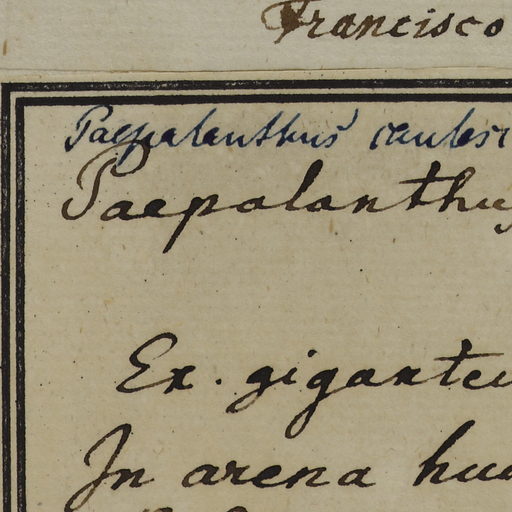 Francisco
Paepalanthus caulesc
Paepalanthus
Ex. giganteu
In arena hu